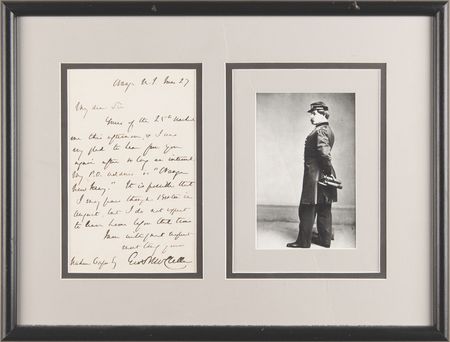 Orange N.J. June 27
My dear Sir
Yours of the 25th reached
me this afternoon, & I was
very glad to hear from you
again after so long an interval
My P.O. address is "Orange
New Jersey." It is possible that
I may pass through Boston in
August but I do not expect
to leave home before that time
I am with great respect
most truly yours
Geo B McClellan